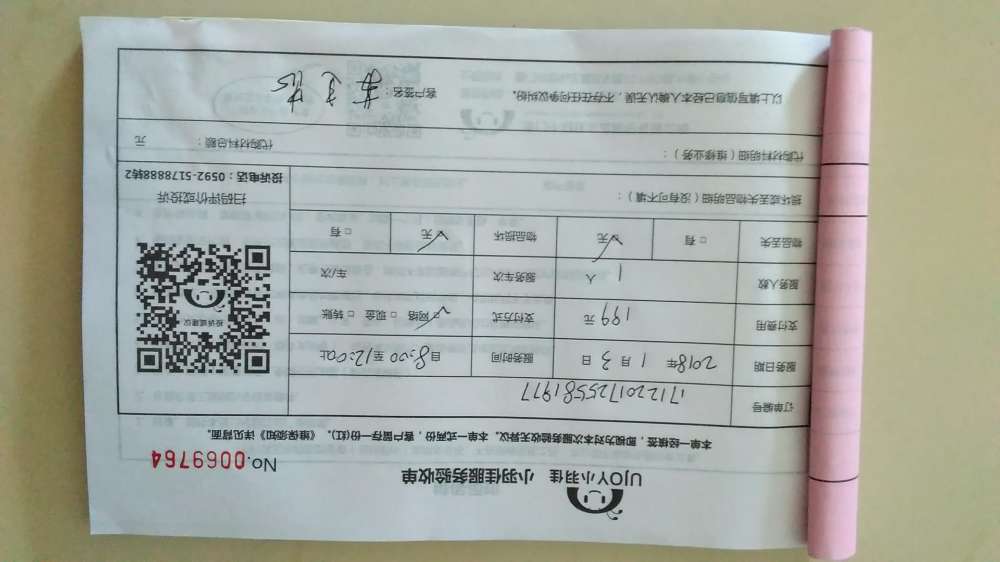 UJOY小羽佳 小羽佳服务验收单
No.0069764
本单一经核签,即视为对本次服务验收无异议。本单一式两份,客户留存一份(红)。《维保须知》详见背面。
订单编号 171220172558197
服务日期 2018年 1 月 3 日 服务时间 自 8:00 至 12:00止
支付费用 199 元 支付方式 □ 网络 □ 现金 □ 转账
服务人数 1 人 服务车次 车/次
物品丢失 □ 有 □ 无 物品损坏 □ 无 □ 有
损坏或丢失物品明细(没有可不填):
投诉或建议
扫码评价或投诉
投诉电话:0592-5178888转2
代购材料明细(维修业务): 代购材料总额: 元
以上填写信息已经本人确认无误,不存在任何争议纠纷。 客户签名: